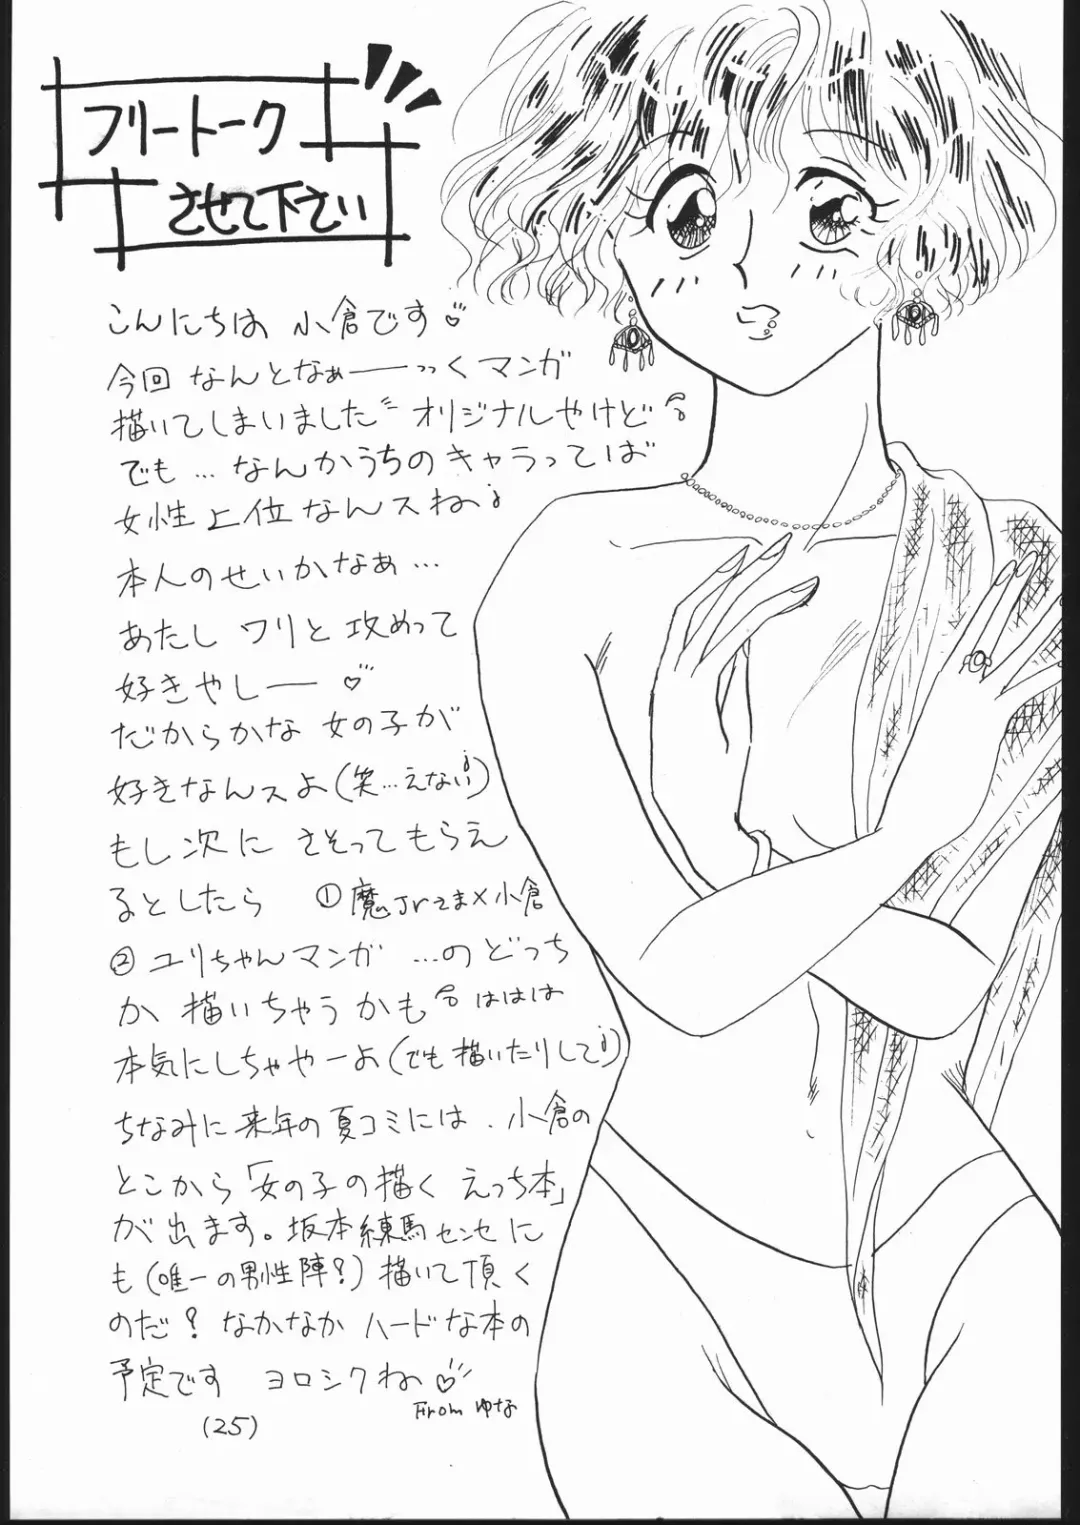 フリートーク
させて下さい
こんにちは 小倉です
今回 なんとなぁーーっっく マンガ
描いてしまいました オリジナルやけど
でも…なんかうちのキャラってば
女性上位なんスね
本人のせいかなぁ…
あたし ワリと 攻めって
好きやしー
だからかな 女の子が
好きなんスよ(笑…えない)
もし次に さそってもらえ
るとしたら ①魔Jrさま×小倉
②ユリちゃんマンガ …のどっち
か 描いちゃうかも ははは
本気にしちゃやーよ(でも描いたりして)
ちなみに来年の夏コミには、小倉の
とこから「女の子の描く えっち本」
が出ます。坂本練馬センセに
も(唯一の男性陣?)描いて頂く
のだ? なかなか ハードな本の
予定です ヨロシクね
From ゆな
(25)